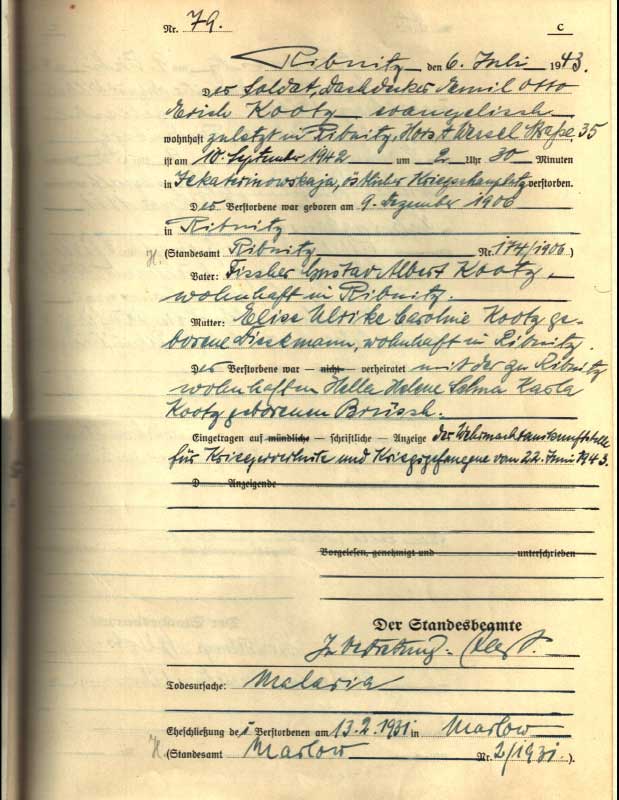 Nr. 79. C
Ribnitz, den 6. Juli 1943.
Der Soldat, Dachdecker Emil Otto
Erich Kootz evangelisch
wohnhaft zuletzt in Ribnitz, Horst Wessel Straße 35
ist am 10. September 1942 um 2 Uhr 30 Minuten
in Jekaterinowskaja, östlicher Kriegsschauplatz verstorben.
Der Verstorbene war geboren am 9. Dezember 1906
in Ribnitz
H. (Standesamt Ribnitz Nr. 174/1906)
Vater: Fischer Gustav Albert Kootz,
wohnhaft in Ribnitz.
Mutter: Elise Ulrike Caroline Kootz ge-
borene Dieckmann, wohnhaft in Ribnitz.
Der Verstorbene war — nicht — verheiratet mit der zu Ribnitz
wohnhaften Hella Helene Selma Karla
Kootz geborenen Brüsch.
Eingetragen auf mündliche — schriftliche — Anzeige der Wehrmachtauskunftstelle
für Kriegerverluste und Kriegsgefangene vom 22. Juni 1943.
D Anzeigende
Vorgelesen, genehmigt und unterschrieben
Der Standesbeamte
In Vertretung.
Todesursache: Malaria
Eheschließung des Verstorbenen am 13.2.1931 in Marlow
H. (Standesamt Marlow Nr. 2/1931.)